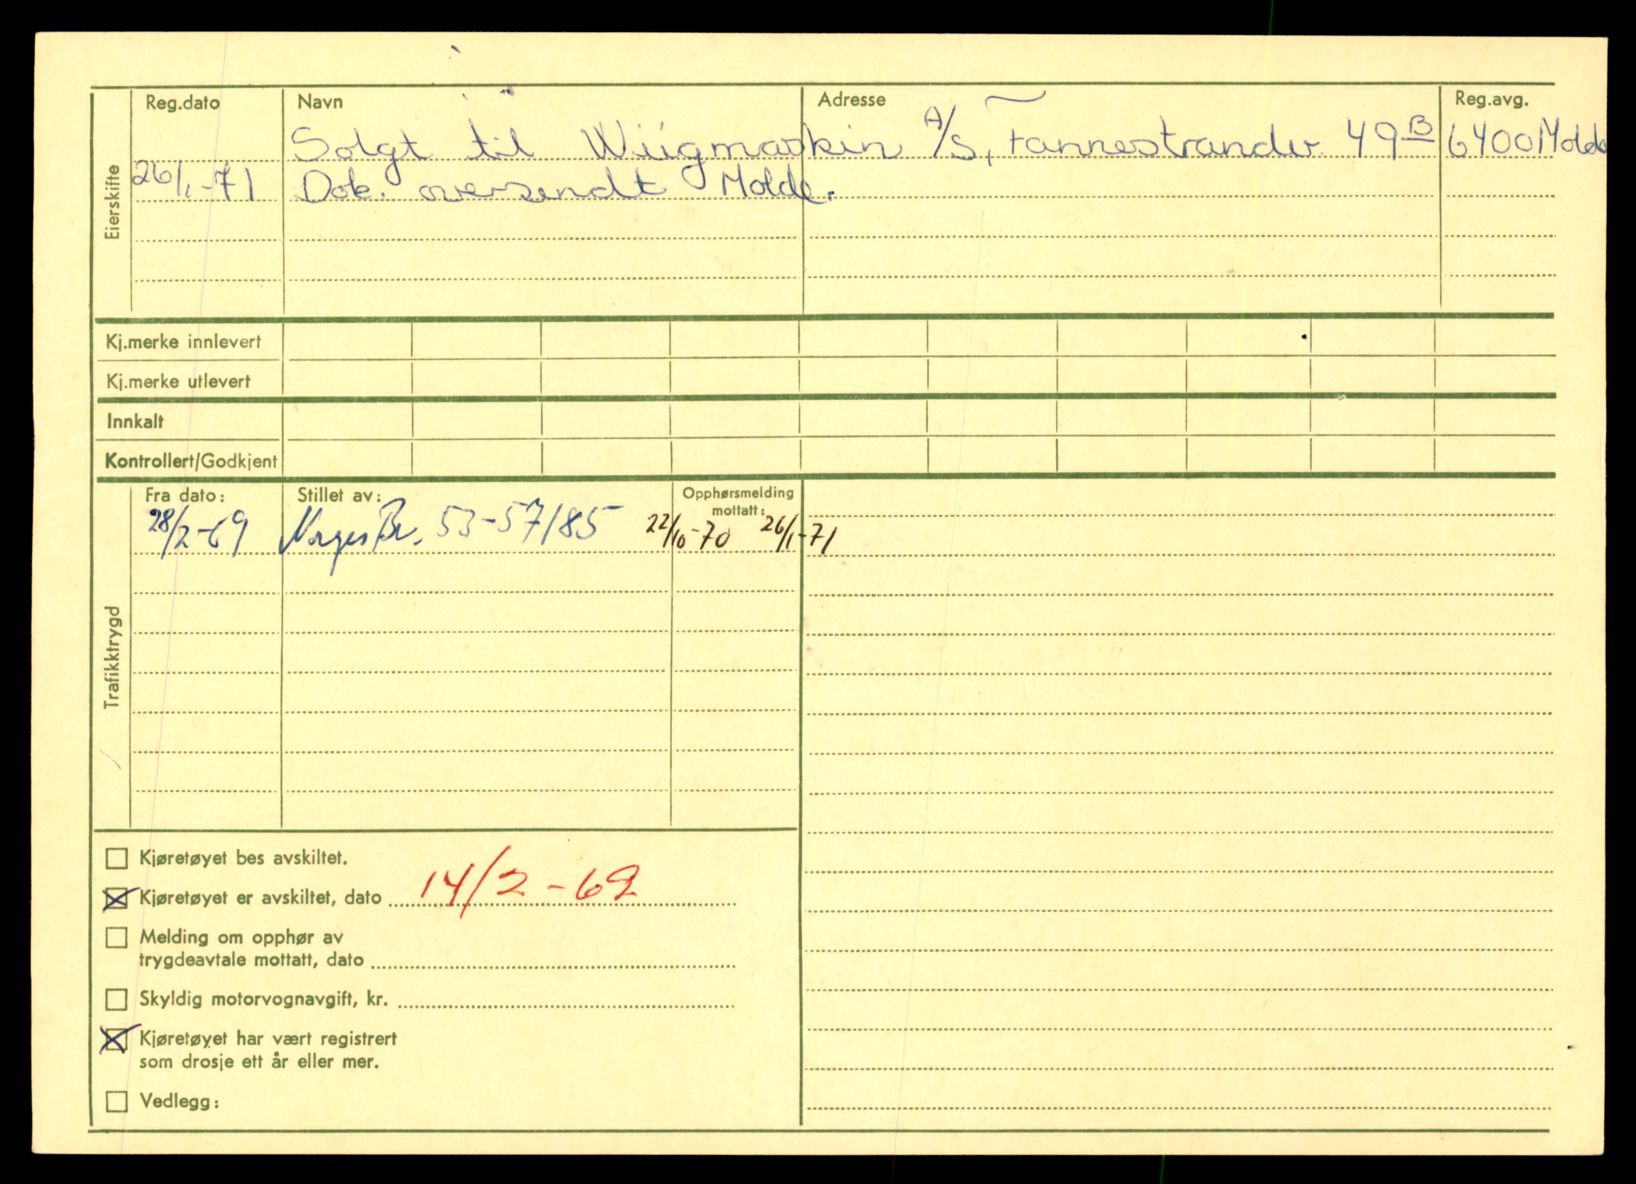 Eierskifte
Reg.dato Navn Adresse Reg.avg.
Solgt til Wiigmaskin A/S, Fannestrandv. 49B 6400 Molde
26/1-71 Dok. oversendt Molde.
Kj.merke innlevert
Kj.merke utlevert
Innkalt
Kontrollert/Godkjent
Trafikktrygd
Fra dato: Stillet av: Opphørsmelding
mottatt:
28/2-69 Norges Br. 53-57185 22/10-70 26/1-71
Kjøretøyet bes avskiltet.
Kjøretøyet er avskiltet, dato 14/2-69
Melding om opphør av
trygdeavtale mottatt, dato
Skyldig motorvognavgift, kr.
Kjøretøyet har vært registrert
som drosje ett år eller mer.
Vedlegg: